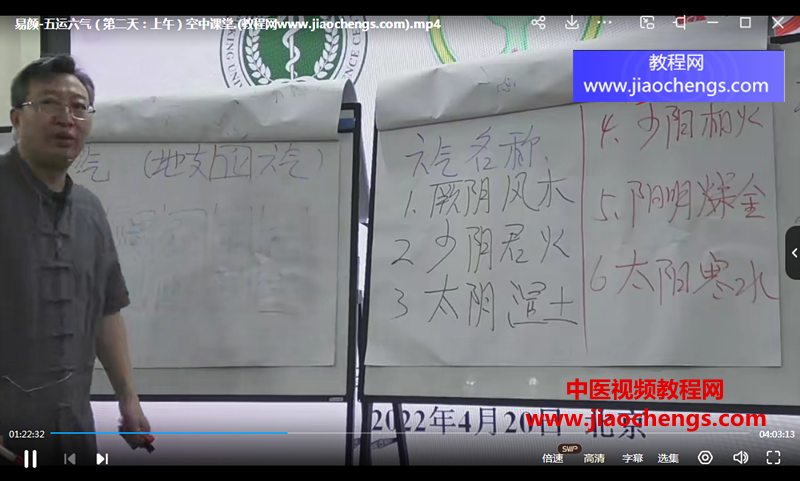 易颜-五运六气（第二天：上午）空中课堂.(教程网www.jiaochengs.com).mp4
教程网
www.jiaochengs.com
气（地支配六气）
六气名称.
1. 厥阴风木
2 少阴君火
3 太阴湿土
4. 少阳相火
5. 阳明燥金
6 太阳寒水
中医视频教程网
www.jiaochengs.com
2022年4月20日 北京
01:22:32
04:03:13
倍速
SVIP
高清
字幕
选集